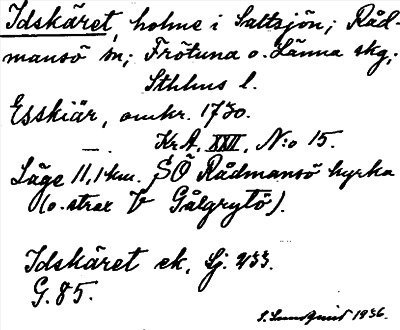 Idskäret, holme i Saltsjön; Råd-
mansö sn; Frötuna o. Länna skg;
Sthlms l.
Esskiär, omkr. 1730.
— . KrA, XXVI, N:o 15.
Läge 11,1 km. SÖ Rådmansö kyrka
(o. strax V Gålgrytö).
Idskäret ek. Sj. 433.
G. 85.
S. Sundquist 1936.